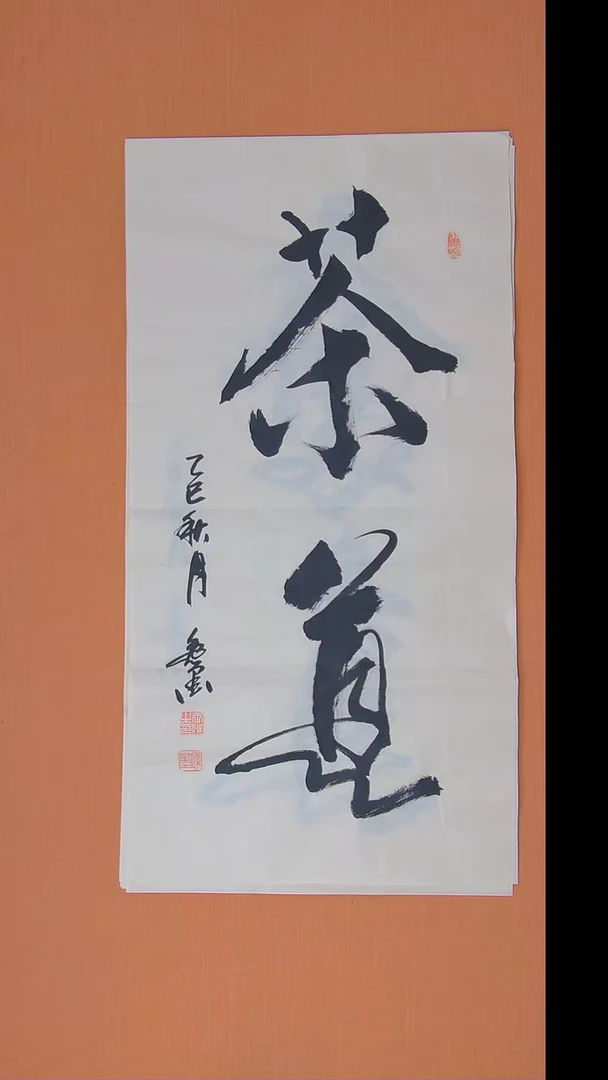 茶道
乙巳秋月